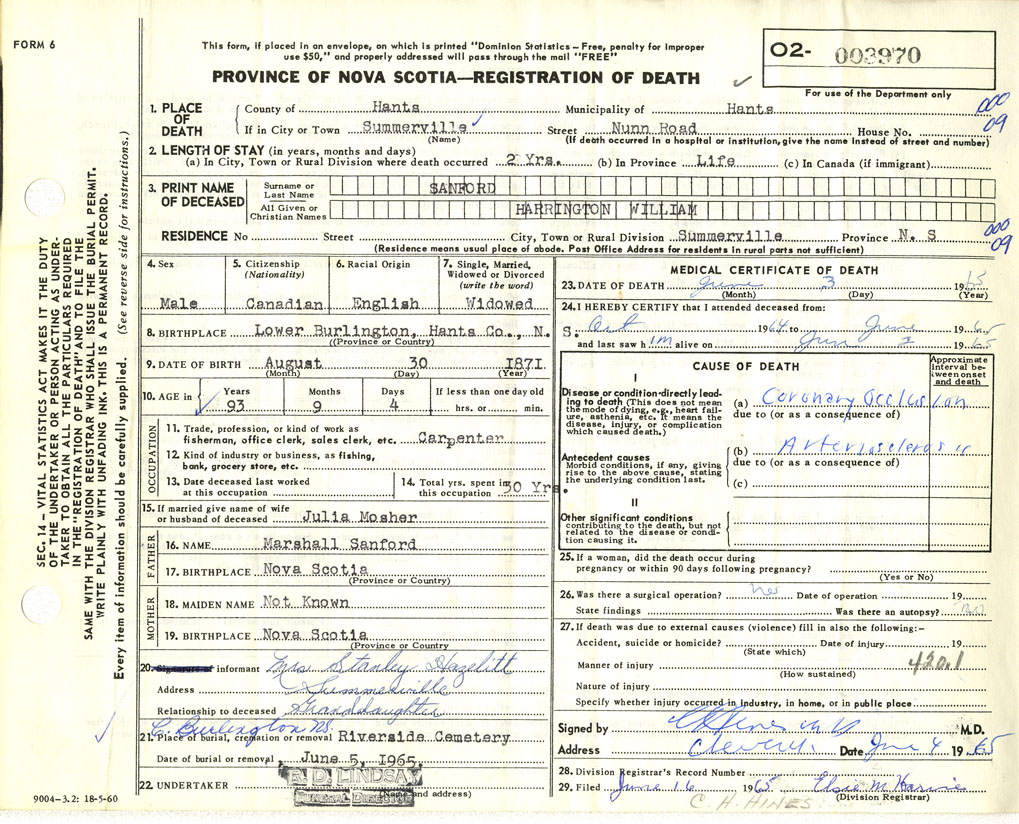 FORM 6
This form, if placed in an envelope, on which is printed "Dominion Statistics – Free, penalty for improper
use $50," and properly addressed will pass through the mail "FREE"
PROVINCE OF NOVA SCOTIA—REGISTRATION OF DEATH
O2- 003970
For use of the Department only
1. PLACE OF DEATH County of Hants Municipality of Hants 000
If in City or Town Summerville Street Nunn Road House No. 09
(Name) (If death occurred in a hospital or institution, give the name instead of street and number)
2. LENGTH OF STAY (in years, months and days)
(a) In City, Town or Rural Division where death occurred 2 Yrs. (b) In Province Life (c) In Canada (if immigrant)
3. PRINT NAME OF DECEASED
Surname or Last Name SANFORD
All Given or Christian Names HARRINGTON WILLIAM
RESIDENCE No Street City, Town or Rural Division Summerville Province N. S 000 09
(Residence means usual place of abode. Post Office Address for residents in rural parts not sufficient)
4. Sex Male
5. Citizenship (Nationality) Canadian
6. Racial Origin English
7. Single, Married, Widowed or Divorced (write the word) Widowed
8. BIRTHPLACE Lower Burlington, Hants Co., N. S.
(Province or Country)
9. DATE OF BIRTH August 30 1871
(Month) (Day) (Year)
10. AGE in Years 93 Months 9 Days 4 If less than one day old hrs. or min.
OCCUPATION
11. Trade, profession, or kind of work as
fisherman, office clerk, sales clerk, etc. Carpenter
12. Kind of industry or business, as fishing,
bank, grocery store, etc.
13. Date deceased last worked
at this occupation
14. Total yrs. spent in
this occupation 50 Yrs.
15. If married give name of wife
or husband of deceased Julia Mosher
FATHER
16. NAME Marshall Sanford
17. BIRTHPLACE Nova Scotia
(Province or Country)
MOTHER
18. MAIDEN NAME Not Known
19. BIRTHPLACE Nova Scotia
(Province or Country
20. Signature of informant Mrs Stanley Hazelitt
Address Summerville
Relationship to deceased Granddaughter
C. Burlington NS.
21. Place of burial, cremation or removal Riverside Cemetery
Date of burial or removal June 5, 1965.
22. UNDERTAKER R. D. LINDSAY
FUNERAL DIRECTOR
(Name and address)
MEDICAL CERTIFICATE OF DEATH
23. DATE OF DEATH June 3 1965
(Month) (Day) (Year)
24. I HEREBY CERTIFY that I attended deceased from:
Oct 1964 to June 1965
and last saw him alive on Jun 2 1965
CAUSE OF DEATH
Approximate interval between onset and death
I
Disease or condition directly leading to death (This does not mean
the mode of dying, e.g., heart failure, asthenia, etc. It means the
disease, injury, or complication
which caused death.)
(a) Coronary Occlusion
due to (or as a consequence of)
Antecedent causes
Morbid conditions, if any, giving
rise to the above cause, stating
the underlying condition last.
(b) Arteriosclerosis
due to (or as a consequence of)
(c)
II
Other significant conditions
contributing to the death, but not
related to the disease or condition causing it.
25. If a woman, did the death occur during
pregnancy or within 90 days following pregnancy?
(Yes or No)
26. Was there a surgical operation? Date of operation 19
State findings Was there an autopsy?
27. If death was due to external causes (violence) fill in also the following:–
Accident, suicide or homicide? Date of injury 19
(State which)
Manner of injury 420.1
(How sustained)
Nature of injury
Specify whether injury occurred in industry, in home, or in public place
Signed by M.D.
Address Date June 4 1965
28. Division Registrar's Record Number
29. Filed June 16 1965 Elsie M
(Division Registrar)
C. H. HINES
SEC. 14 – VITAL STATISTICS ACT MAKES IT THE DUTY
OF THE UNDERTAKER OR PERSON ACTING AS UNDER-
TAKER TO OBTAIN ALL THE PARTICULARS REQUIRED
IN THE "REGISTRATION OF DEATH" AND TO FILE THE
SAME WITH THE DIVISION REGISTRAR WHO SHALL ISSUE THE BURIAL PERMIT.
WRITE PLAINLY WITH UNFADING INK. THIS IS A PERMANENT RECORD.
Every item of information should be carefully supplied. (See reverse side for instructions.)
9004-3.2: 18-5-60